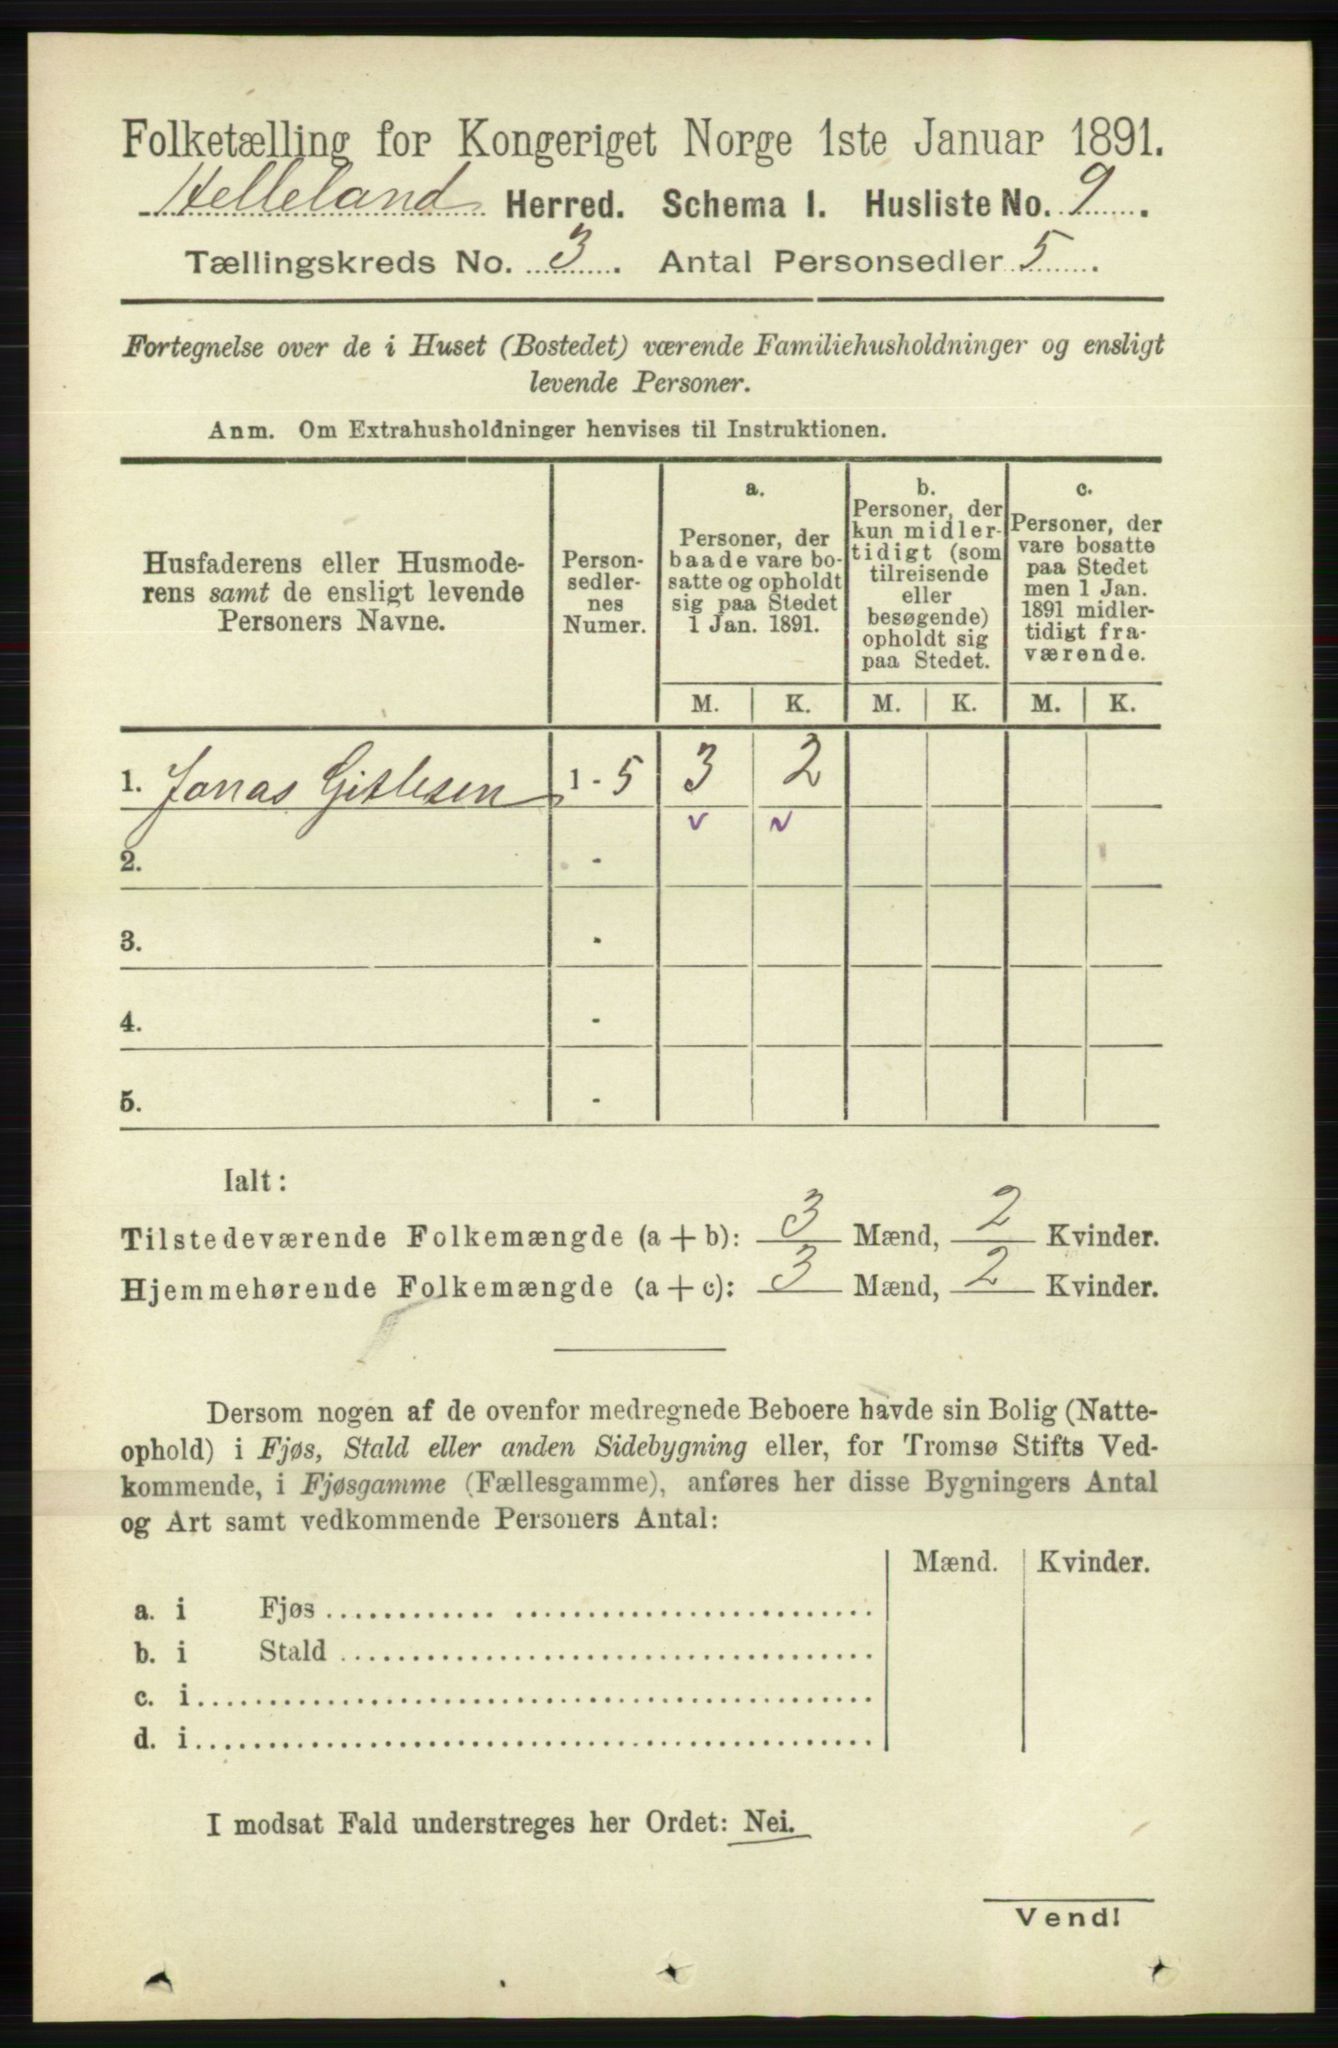 Folketælling for Kongeriget Norge 1ste Januar 1891.
Helleland Herred. Schema I. Husliste No. 9.
Tællingskreds No. 3. Antal Personsedler 5.
Fortegnelse over de i Huset (Bostedet) værende Familiehusholdninger og ensligt
levende Personer.
Anm. Om Extrahusholdninger henvises til Instruktionen.
Husfaderens eller Husmode-
rens samt de ensligt levende
Personers Navne.
Person-
sedler-
nes
Numer.
a.
Personer, der
baade vare bo-
satte og opholdt
sig paa Stedet
1 Jan. 1891.
b.
Personer, der
kun midler-
tidigt (som
tilreisende
eller
besøgende)
opholdt sig
paa Stedet.
c.
Personer, der
vare bosatte
paa Stedet
men 1 Jan.
1891 midler-
tidigt fra-
værende.
M. K. M. K. M. K.
1. Jonas Gitlesen 1 - 5 3 2
v v
2. -
3. -
4. -
5. -
Ialt:
Tilstedeværende Folkemængde (a + b): 3 Mænd, 2 Kvinder.
Hjemmehørende Folkemængde (a + c): 3 Mænd, 2 Kvinder.
Dersom nogen af de ovenfor medregnede Beboere havde sin Bolig (Natte-
ophold) i Fjøs, Stald eller anden Sidebygning eller, for Tromsø Stifts Ved-
kommende, i Fjøsgamme (Fællesgamme), anføres her disse Bygningers Antal
og Art samt vedkommende Personers Antal:
Mænd. Kvinder.
a. i Fjøs
b. i Stald
c. i
d. i
I modsat Fald understreges her Ordet: Nei.
Vend!